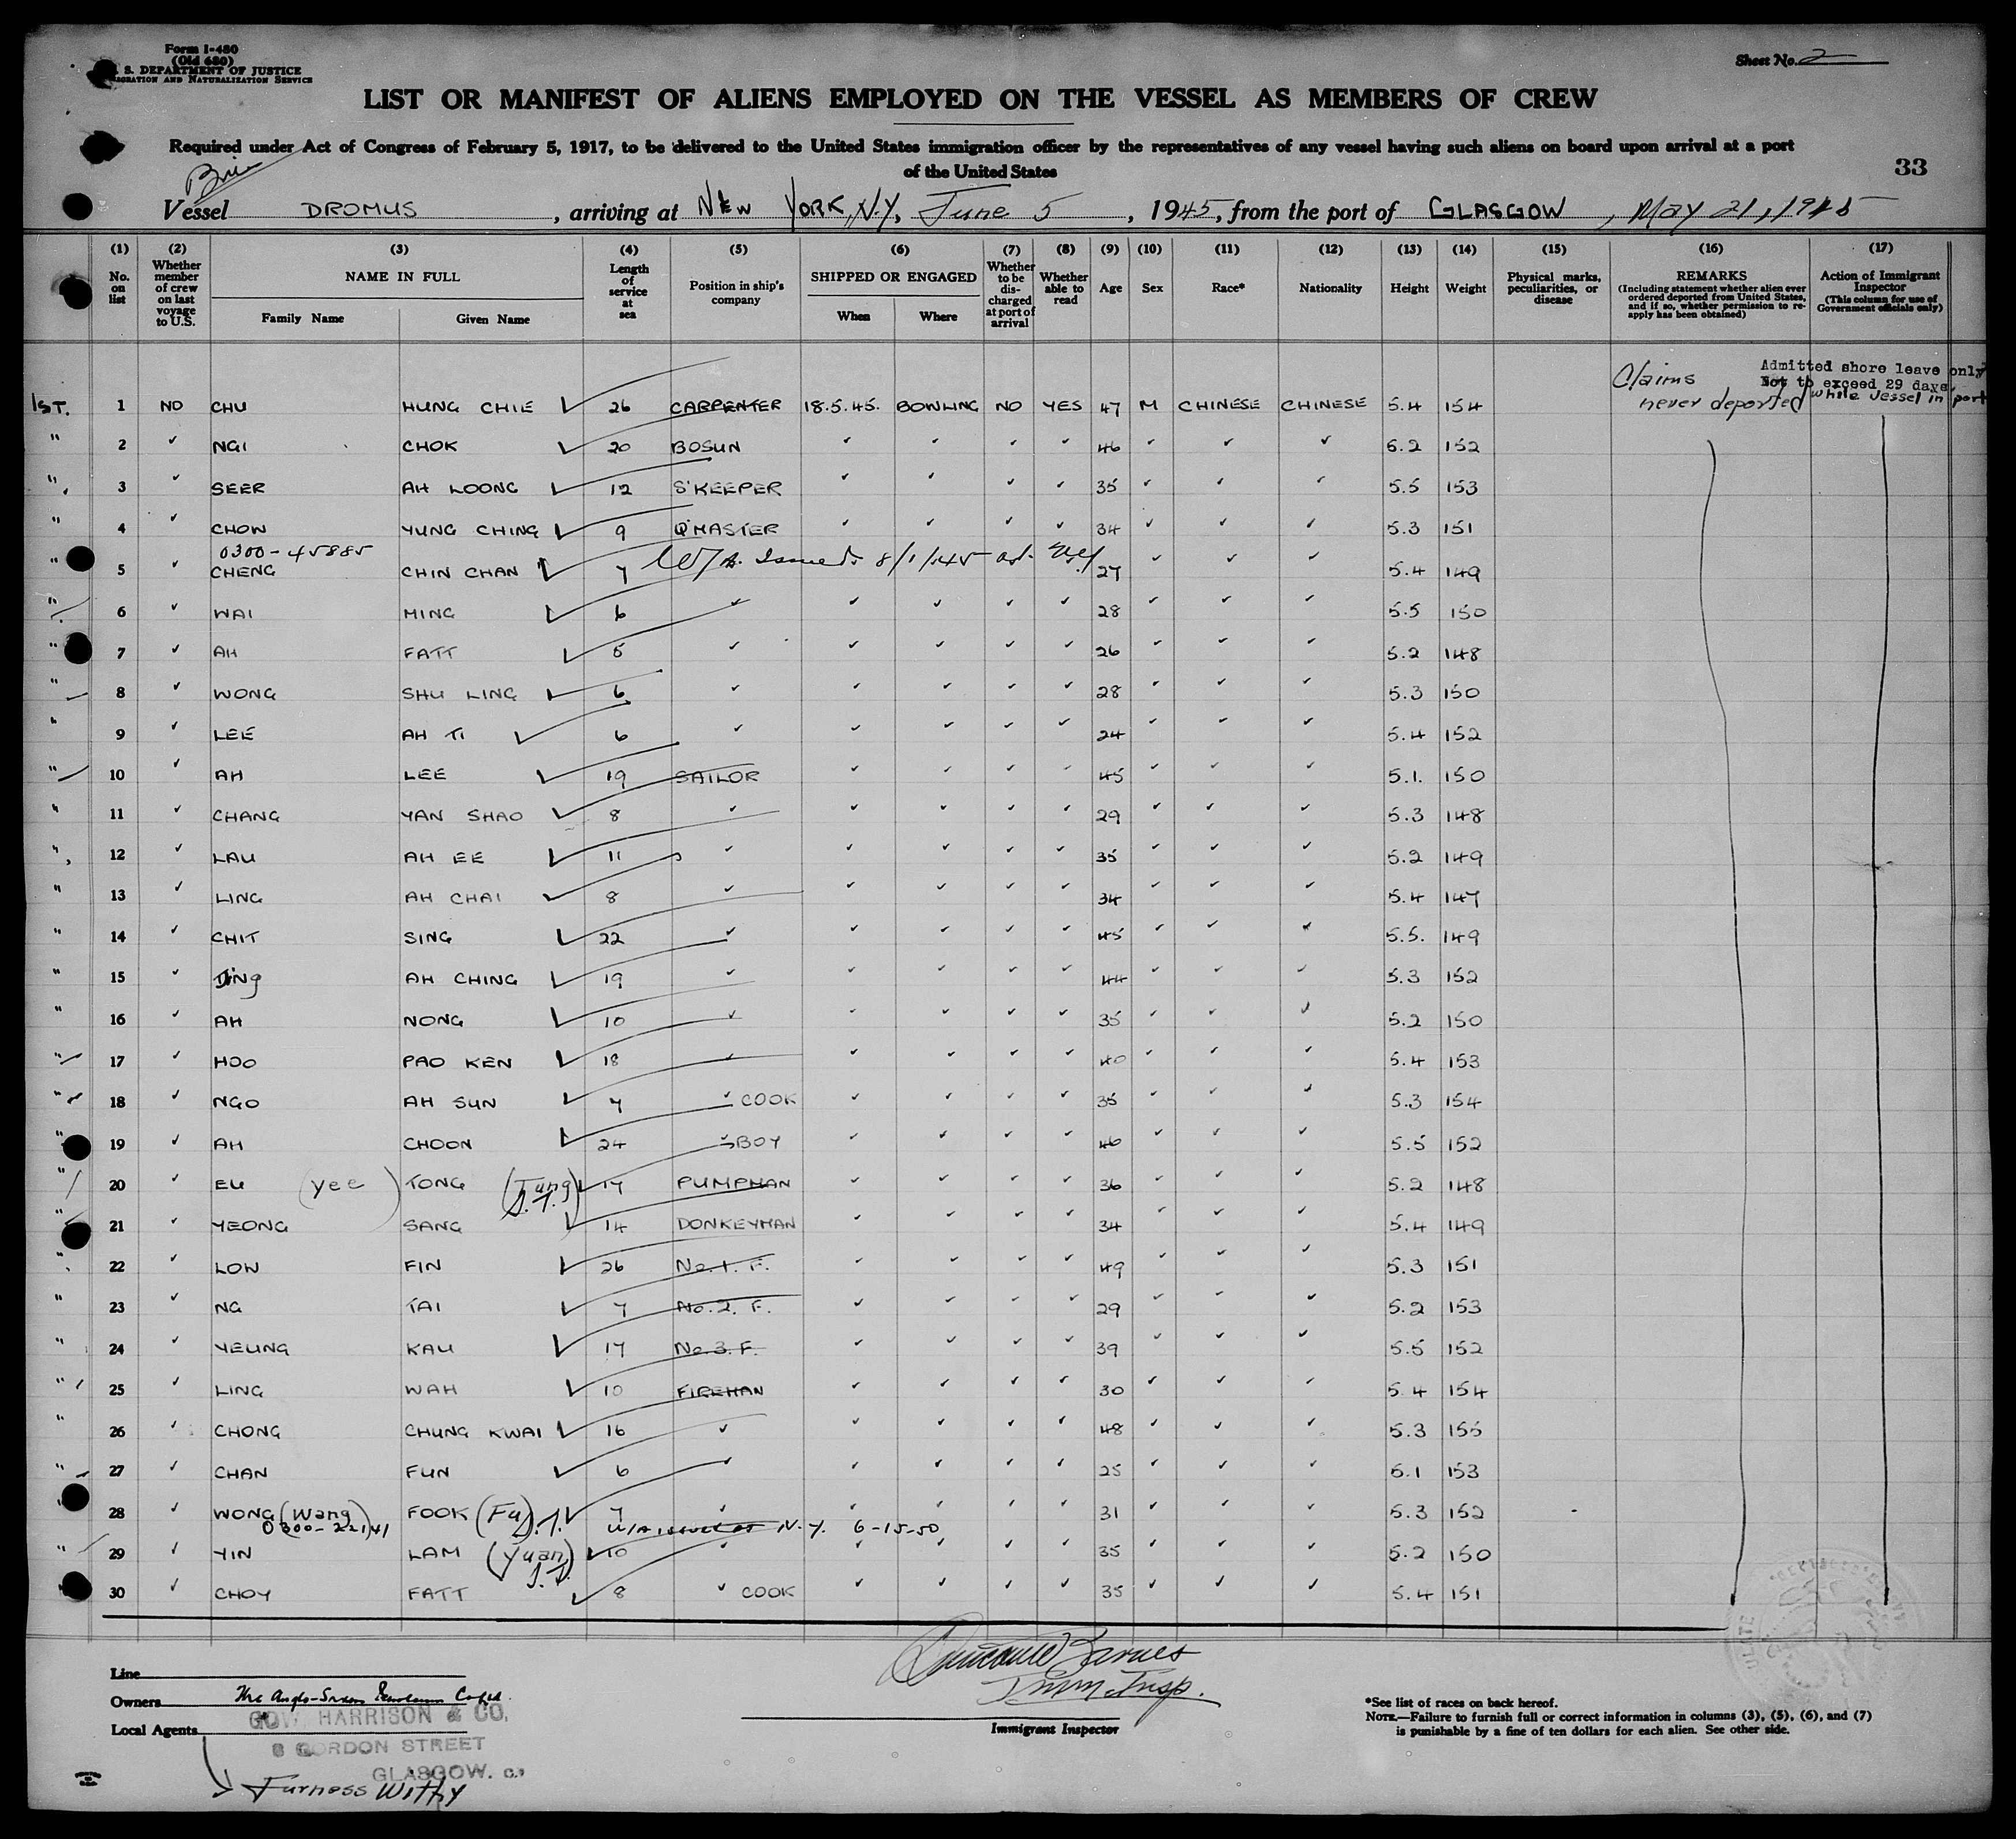 Form I-480
(Old 680)
S. DEPARTMENT OF JUSTICE
IMMIGRATION AND NATURALIZATION SERVICE
Sheet No. 2
LIST OR MANIFEST OF ALIENS EMPLOYED ON THE VESSEL AS MEMBERS OF CREW
Required under Act of Congress of February 5, 1917, to be delivered to the United States immigration officer by the representatives of any vessel having such aliens on board upon arrival at a port
of the United States
33
Brit
Vessel DROMUS, arriving at NEW YORK, N.Y., June 5, 1945, from the port of GLASGOW, May 21, 1945
(1) No. on list (2) Whether member of crew on last voyage to U.S. (3) NAME IN FULL Family Name Given Name (4) Length of service at sea (5) Position in ship's company (6) SHIPPED OR ENGAGED When Where (7) Whether to be discharged at port of arrival (8) Whether able to read (9) Age (10) Sex (11) Race* (12) Nationality (13) Height (14) Weight (15) Physical marks, peculiarities, or disease (16) REMARKS (Including statement whether alien ever ordered deported from United States, and if so, whether permission to reapply has been obtained) (17) Action of Immigrant Inspector (This column for use of Government officials only)
Claims never deported
Admitted shore leave only
Not to exceed 29 days,
while vessel in port
1ST. 1 NO CHU HUNG CHIE ✓ 26 CARPENTER 18.5.45. BOWLING NO YES 47 M CHINESE CHINESE 5.4 154
" 2 ✓ NGI CHOK ✓ 20 BOSUN ✓ ✓ ✓ ✓ 46 ✓ ✓ ✓ 5.2 152
" 3 ✓ SEER AH LOONG ✓ 12 S'KEEPER ✓ ✓ ✓ ✓ 35 ✓ ✓ ✓ 5.5 153
" 4 ✓ CHOW YUNG CHING ✓ 9 Q'MASTER ✓ ✓ ✓ ✓ 34 ✓ ✓ ✓ 5.3 151
0300-45885
" 5 ✓ CHENG CHIN CHAN ✓ 7 W/A Issued 8/1/45 27 ✓ ✓ ✓ 5.4 149
" 6 ✓ WAI MING ✓ 6 ✓ ✓ ✓ ✓ ✓ 28 ✓ ✓ ✓ 5.5 150
" 7 ✓ AH FATT ✓ 5 ✓ ✓ ✓ ✓ ✓ 26 ✓ ✓ ✓ 5.2 148
" 8 ✓ WONG SHU LING ✓ 6 ✓ ✓ ✓ ✓ ✓ 28 ✓ ✓ ✓ 5.3 150
" 9 ✓ LEE AH TI ✓ 6 ✓ ✓ ✓ ✓ ✓ 24 ✓ ✓ ✓ 5.4 152
" 10 ✓ AH LEE ✓ 19 SAILOR ✓ ✓ ✓ ✓ 45 ✓ ✓ ✓ 5.1. 150
" 11 ✓ CHANG YAN SHAO ✓ 8 ✓ ✓ ✓ ✓ ✓ 29 ✓ ✓ ✓ 5.3 148
" 12 ✓ LAU AH EE ✓ 11 ✓ ✓ ✓ ✓ ✓ 35 ✓ ✓ ✓ 5.2 149
" 13 ✓ LING AH CHAI ✓ 8 ✓ ✓ ✓ ✓ ✓ 34 ✓ ✓ ✓ 5.4 147
" 14 ✓ CHIT SING ✓ 22 ✓ ✓ ✓ ✓ ✓ 45 ✓ ✓ ✓ 5.5. 149
" 15 ✓ Ding AH CHING ✓ 19 ✓ ✓ ✓ ✓ ✓ 44 ✓ ✓ ✓ 5.3 152
" 16 ✓ AH NONG ✓ 10 ✓ ✓ ✓ ✓ ✓ 35 ✓ ✓ ✓ 5.2 150
" 17 ✓ HOO PAO KEN ✓ 18 ✓ ✓ ✓ ✓ ✓ 40 ✓ ✓ ✓ 5.4 153
" 18 ✓ NGO AH SUN ✓ 7 ✓ COOK ✓ ✓ ✓ ✓ 35 ✓ ✓ ✓ 5.3 154
" 19 ✓ AH CHOON ✓ 24 ✓ BOY ✓ ✓ ✓ ✓ 46 ✓ ✓ ✓ 5.5 152
" 20 ✓ EU (Yee) TONG (Tung) S.T. ✓ 17 PUMPMAN ✓ ✓ ✓ ✓ 36 ✓ ✓ ✓ 5.2 148
" 21 YEONG SANG ✓ 14 DONKEYMAN ✓ ✓ ✓ ✓ 34 ✓ ✓ ✓ 5.4 149
" 22 ✓ LOW FIN ✓ 26 No. 1. F. ✓ ✓ ✓ ✓ 49 ✓ ✓ ✓ 5.3 151
" 23 ✓ NG TAI ✓ 7 No. 2. F. ✓ ✓ ✓ ✓ 29 ✓ ✓ ✓ 5.2 153
" 24 ✓ YEUNG KAU ✓ 17 No. 3. F. ✓ ✓ ✓ ✓ 39 ✓ ✓ ✓ 5.5 152
" 25 ✓ LING WAH ✓ 10 FIREMAN ✓ ✓ ✓ ✓ 30 ✓ ✓ ✓ 5.4 154
" 26 ✓ CHONG CHUNG KWAI ✓ 16 ✓ ✓ ✓ ✓ ✓ 48 ✓ ✓ ✓ 5.3 155
" 27 ✓ CHAN FUN ✓ 6 ✓ ✓ ✓ ✓ ✓ 25 ✓ ✓ ✓ 5.1 153
28 ✓ WONG (Wang) FOOK (Fu) S.T. ✓ 7 ✓ ✓ ✓ ✓ ✓ 31 ✓ ✓ ✓ 5.3 152
0300-22141 W/A issued at N.Y. 6-15-50
" 29 ✓ YIN LAM (Yuan) S.T. ✓ 10 ✓ ✓ ✓ ✓ ✓ 35 ✓ ✓ ✓ 5.2 150
30 ✓ CHOY FATT ✓ 8 ✓ COOK ✓ ✓ ✓ ✓ 35 ✓ ✓ ✓ 5.4 151
Line
Owners The Anglo-Saxon Petroleum Co. Ltd.
Local Agents GOW, HARRISON & CO.
8 GORDON STREET
GLASGOW. C.1
Furness Withy
Barnes
Imm Insp.
Immigrant Inspector
*See list of races on back hereof.
NOTE.—Failure to furnish full or correct information in columns (3), (5), (6), and (7)
is punishable by a fine of ten dollars for each alien. See other side.